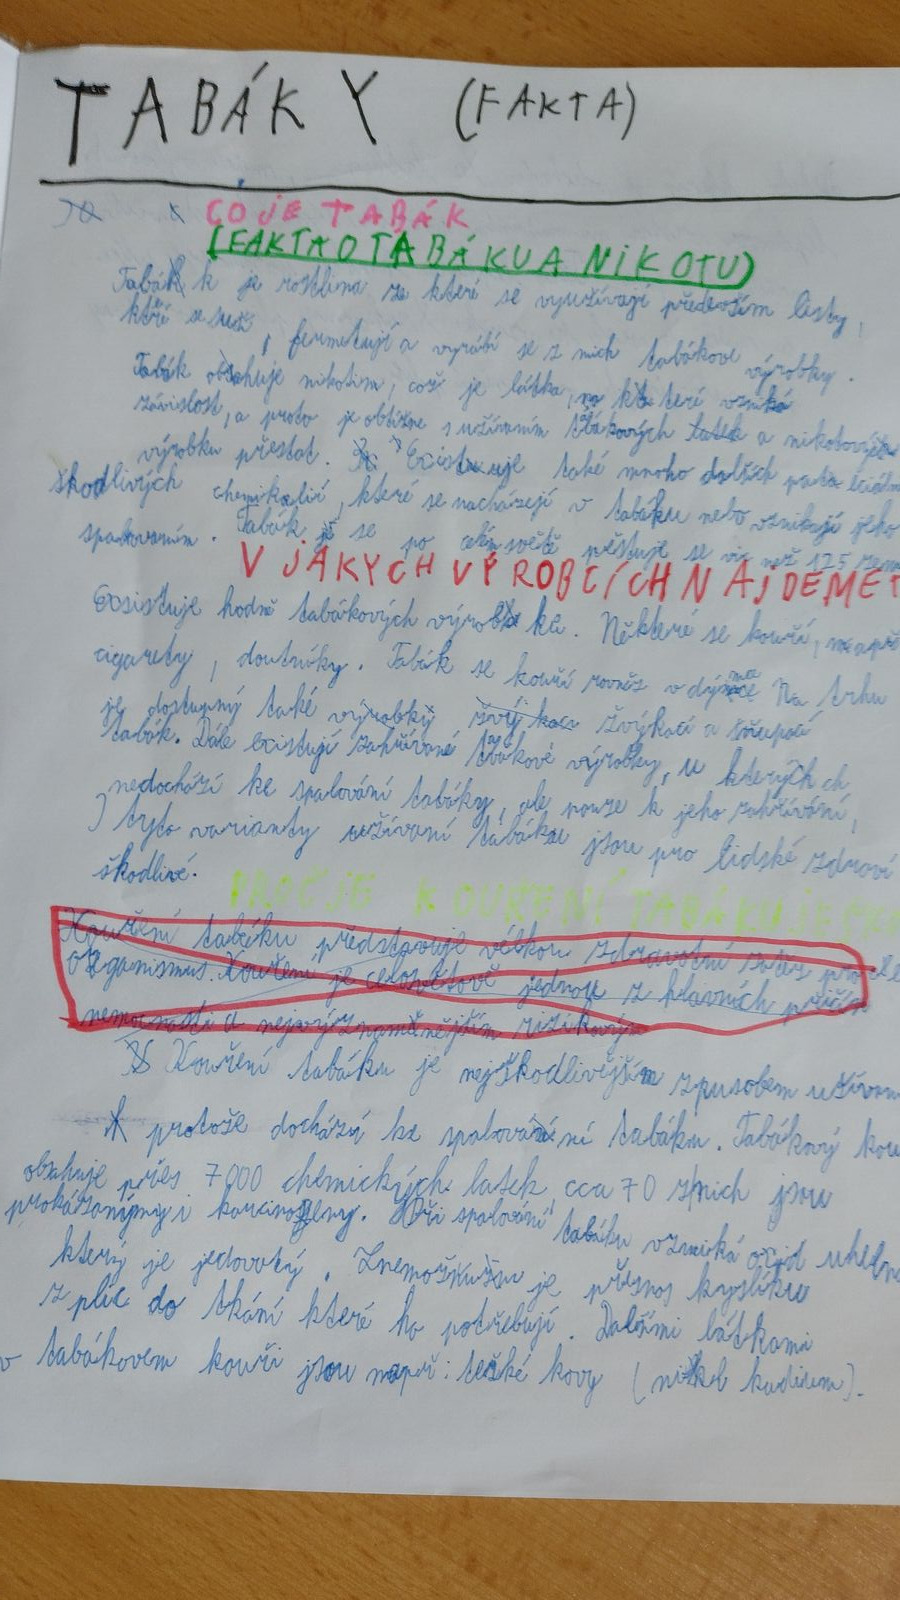 TABÁKY (FAKTA)
CO JE TABÁK
(FAKTA O TABÁKU A NIKOTU)
Tabák k je rostlina ze které se využívají především listy,
kteé se suš, fermetují a vyrábí se z nich tabákove výrobky.
Tabák obsahuje nikotin, což je látka, na kte teré vzniká
závislost, a proto je obtížne s užíváním tabákových latek a
výrobku přestat. Existuje také mnoho dalších
škodlivých chemikalií, které se nacházejí v tabáku nebo vznikají jeho
spalovaním. Tabák se po celém světě pěstuje se víc než 125
V JAKÝCH VÝROBCÍCH NAJDEME T
Exsistuje hodně tabákových výrobk ku. Některé se kouří, např
cigarety, doutníky. Tabák se kouří rovněs v dýmce Na trhu
je dostupný také výrobky žvýkací a šňupací
tabák. Dále existují zahřívané tabákové výrobky, u kterých ch
nedochází ke spalování tabáky, ale pouze k jeho zahřívání,
I tyto varianty užívaní tabáku jsou pro lidské zdraví
škodlivé.
PROČ JE KOUŘENÍ TABÁKU JE
Kouření tabáku představuje vélkou zdravotní zátěž pro
organismus. Kouření je celosvětově jednou z hlavních příčin
nemocnosti a nejvýznamnějším rizikovým
Kouření tabáku je nejškodlivějším zpusobem
protože dochází ke spalování ní tabáku. Tabákový kou
obsahuje přes 7000 chemických latek cca 70 z nich jsou
prokázanými karcinogeny. Při spalování tabáku vzniká oxid uhelna
který je jedovatý. Znemožňuje přenos kyslíku
z plic do tkání které ho potřebují. Dalšími látkami
v tabákovem kouři jsou např: težké kovy (nikl kadium).